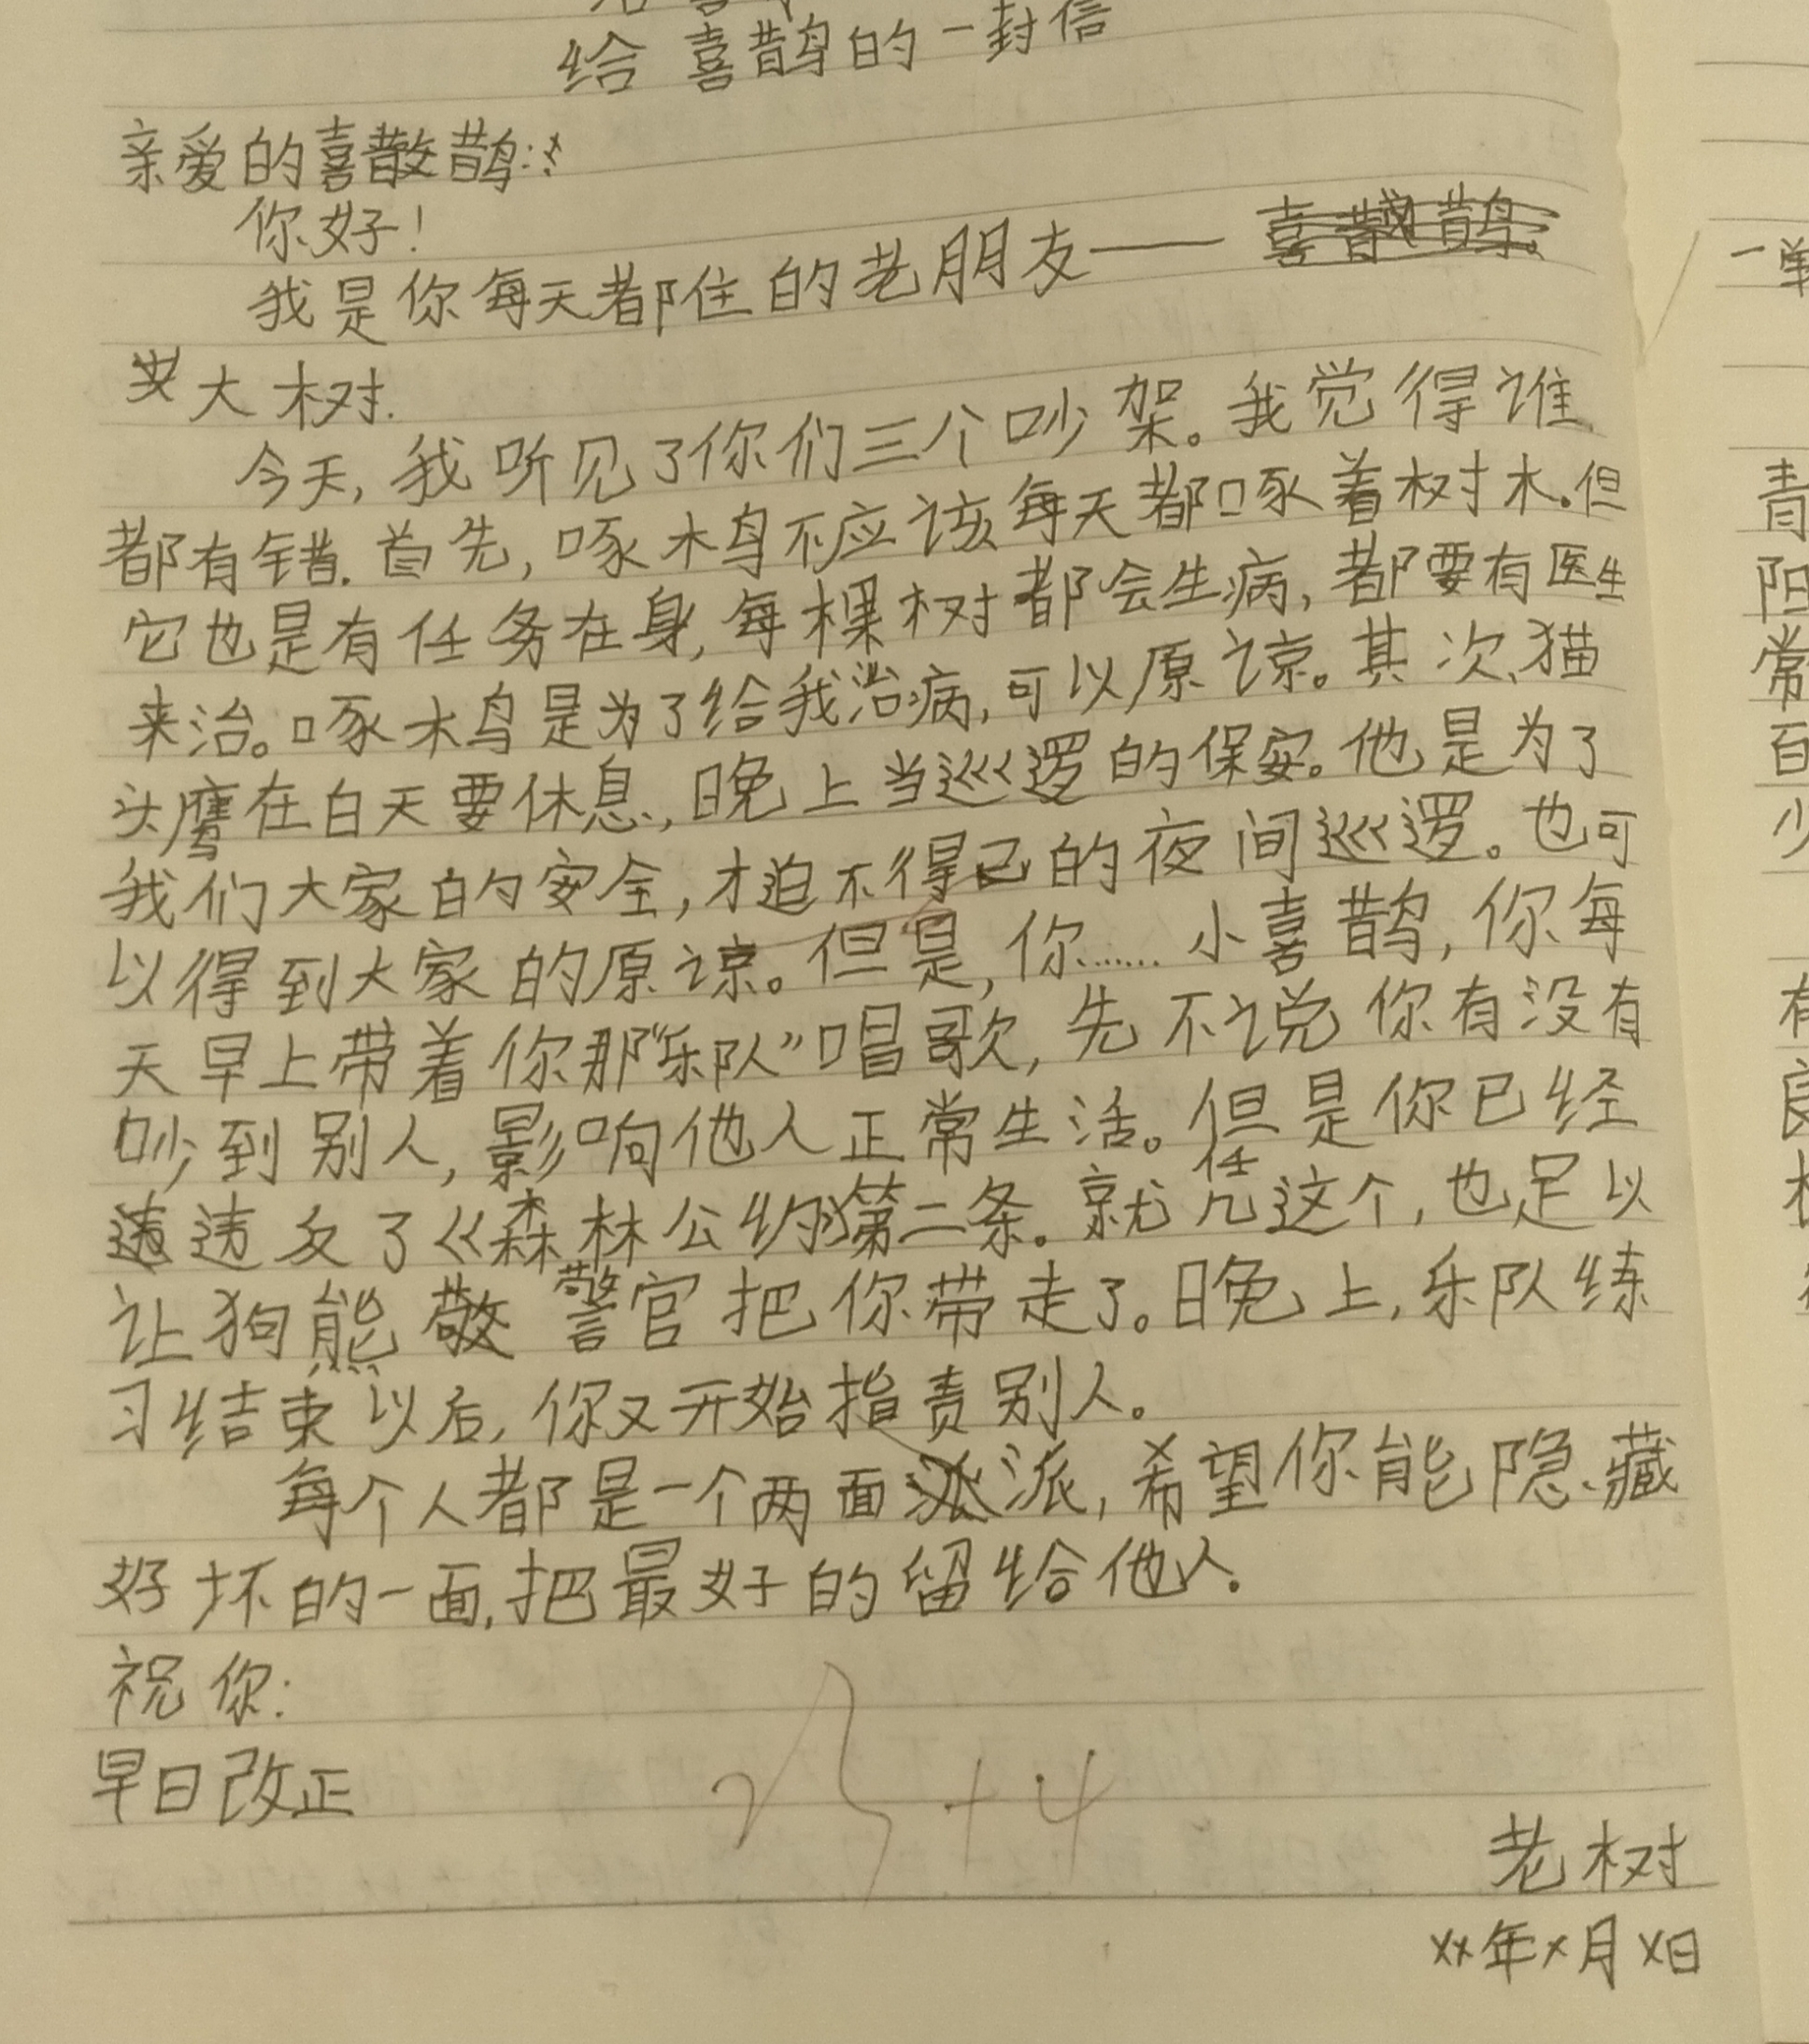 给喜鹊的一封信
亲爱的喜鹊:
你好!
我是你每天都住的老朋友——
大树.
今天,我听见了你们三个吵架。我觉得谁
都有错.首先,啄木鸟不应该每天都啄着树木.但
它也是有任务在身,每棵树都会生病,都要有医生
来治。啄木鸟是为了给我治病,可以原谅。其次,猫
头鹰在白天要休息,晚上当巡逻的保安。他是为了
我们大家的安全,才迫不得己的夜间巡逻。也可
以得到大家的原谅。但是,你……小喜鹊,你每
天早上带着你那“乐队”唱歌,先不说你有没有
吵到别人,影响他人正常生活。但是你已经
违反了《森林公约》第二条。就凭这个,也足以
让狗熊警官把你带走了。晚上,乐队练
习结束以后,你又开始指责别人。
每个人都是一个两面派,希望你能隐藏
好坏的一面,把最好的留给他人。
祝你:
早日改正
+4
老树
xx年x月x日
一
青
常
百
少
有